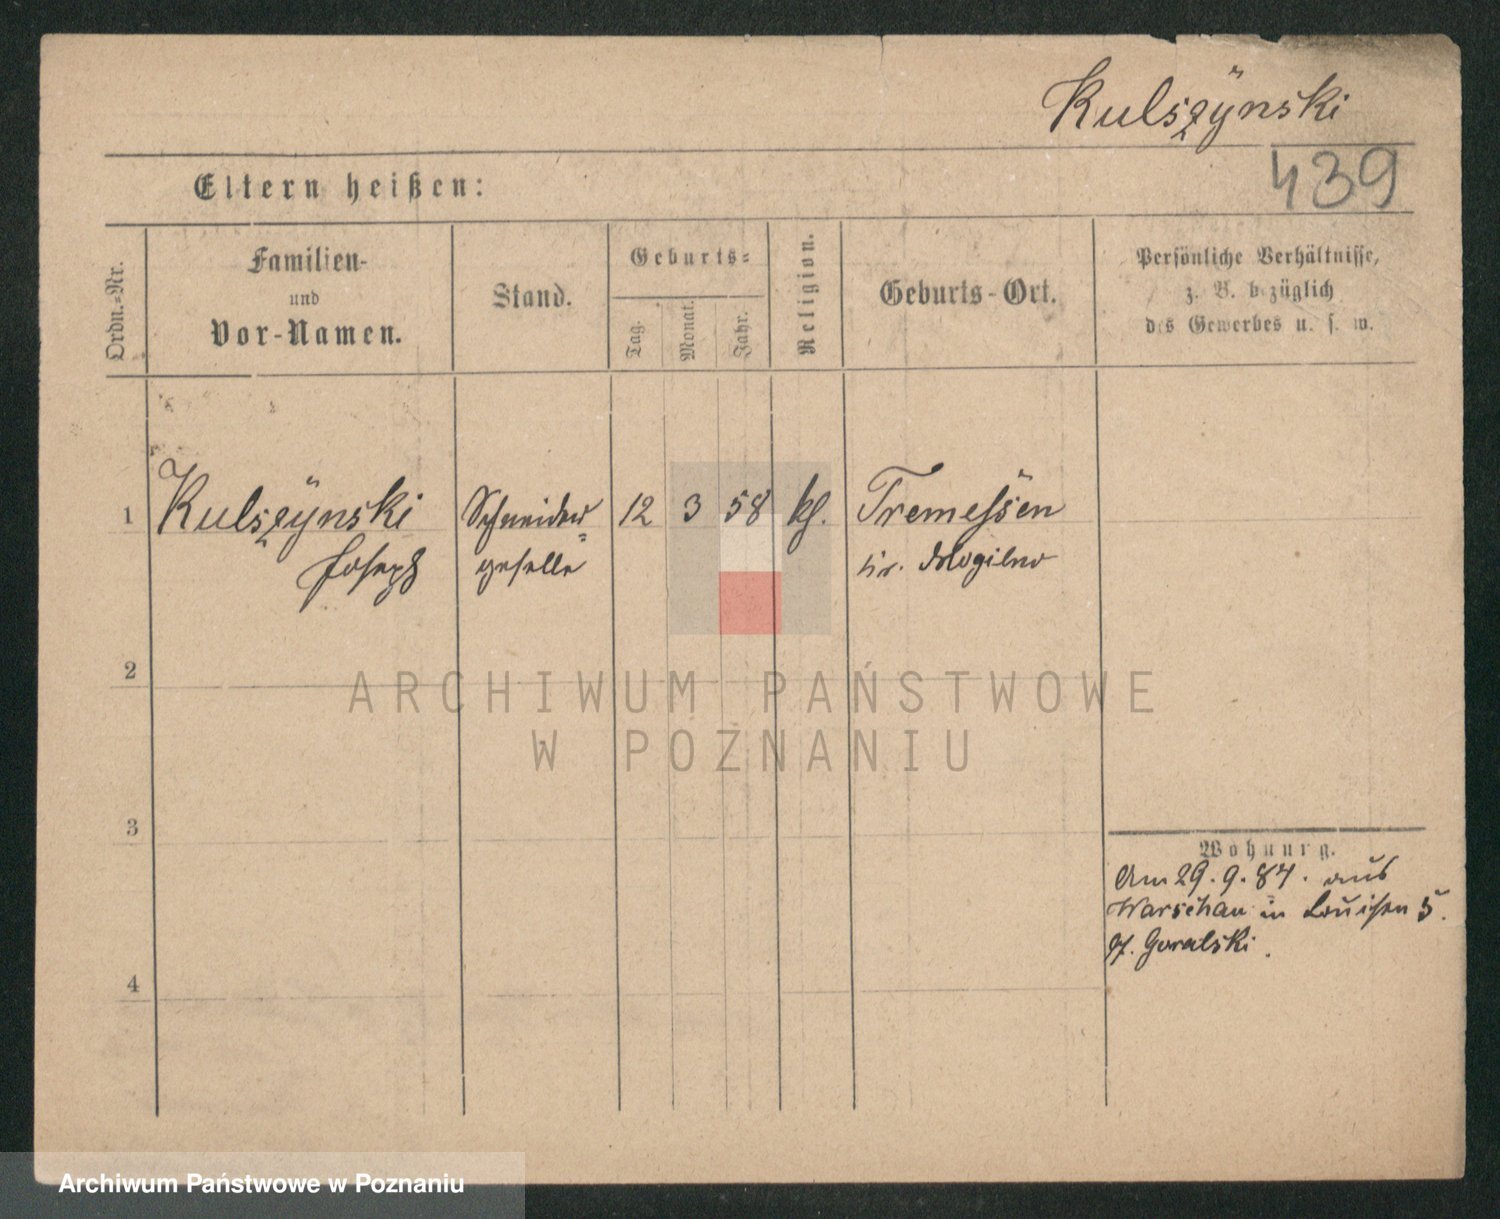 Kulszÿnski
439
Eltern heißen:
Ordn.-Nr.
Familien-
und
Vor-Namen.
Stand.
Geburts-
Tag.
Monat.
Jahr.
Religion.
Geburts-Ort.
Persönliche Verhältnisse,
z. B. bezüglich
des Gewerbes u. s. w.
1 Kulszÿnski Schneider= 12 3 58 kf. Tremeſsen
Joseph geselle Kr. Mogilno
2
3
4
Wohnung.
Am 29. 9. 84. aus
Warschau in Louisen 5.
Goralski.
ARCHIWUM PAŃSTWOWE
W POZNANIU
Archiwum Państwowe w Poznaniu